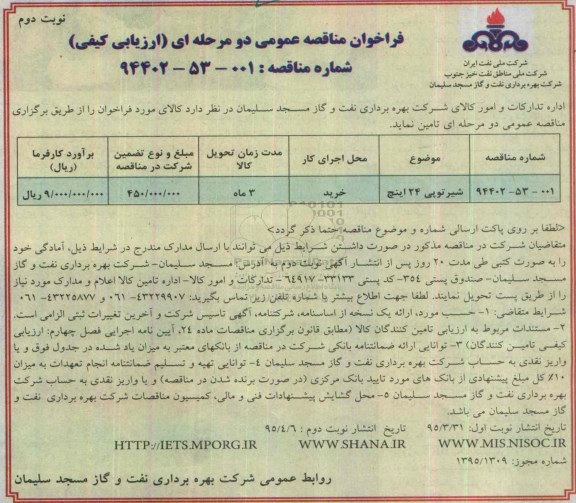 نوبت دوم
فراخوان مناقصه عمومی دو مرحله ای (ارزیابی کیفی)
شماره مناقصه : ۰۰۱ - ۵۳ - ۹۴۴۰۲
شرکت ملی نفت ایران
شرکت ملی مناطق نفت خیز جنوب
شرکت بهره برداری نفت و گاز مسجد سلیمان
اداره تدارکات و امور کالای شرکت بهره برداری نفت و گاز مسجد سلیمان در نظر دارد کالای مورد فراخوان را از طریق برگزاری
مناقصه عمومی دو مرحله ای تامین نماید.
شماره مناقصه موضوع محل اجرای کار مدت زمان تحویل کالا مبلغ و نوع تضمین شرکت در مناقصه برآورد کارفرما (ریال)
۰۰۱ - ۵۳ - ۹۴۴۰۲ شیرتوپی ۲۴ اینچ خرید ۳ ماه ۴۵۰/۰۰۰/۰۰۰ ۹/۰۰۰/۰۰۰/۰۰۰ ریال
<لطفا بر روی پاکت ارسالی شماره و موضوع مناقصه حتما ذکر گردد>
متقاضیان شرکت در مناقصه مذکور در صورت داشتن شرایط ذیل می توانند با ارسال مدارک مندرج در شرایط ذیل، آمادگی خود
را به صورت کتبی طی مدت ۲۰ روز پس از انتشار آگهی نوبت دوم به آدرس: مسجد سلیمان- شرکت بهره برداری نفت و گاز
مسجد سلیمان- صندوق پستی ۳۵۴- کد پستی ۳۳۱۳۳-۶۴۹۱۷ - تدارکات و امور کالا- اداره تامین کالا اعلام و مدارک مورد نیاز
را از طریق پست تحویل نمایند. لطفا جهت اطلاع بیشتر با شماره تلفن زیر تماس بگیرید: ۴۳۲۲۹۹۰۷-۰۶۱ و ۴۳۲۲۵۸۷۷-۰۶۱
شرایط متقاضی: ۱- حسب مورد، ارائه یک نسخه از اساسنامه، شرکتنامه، آگهی تاسیس شرکت و آخرین تغییرات ثبتی الزامی است.
۲- مستندات مربوط به ارزیابی تامین کنندگان کالا (مطابق قانون برگزاری مناقصات ماده ۲۴، آیین نامه اجرایی فصل چهارم: ارزیابی
کیفی تامین کنندگان) ۳- توانایی ارائه ضمانتنامه بانکی شرکت در مناقصه از بانکهای معتبر به میزان یاد شده در جدول فوق و یا
واریز نقدی به حساب شرکت بهره برداری نفت و گاز مسجد سلیمان ۴- توانایی تهیه و تسلیم ضمانتنامه انجام تعهدات به میزان
۱۰٪ کل مبلغ پیشنهادی از بانک های مورد تایید بانک مرکزی (در صورت برنده شدن در مناقصه) و یا واریز نقدی به حساب شرکت
بهره برداری نفت و گاز مسجد سلیمان ۵- محل گشایش پیشنهادات فنی و مالی، کمیسیون مناقصات شرکت بهره برداری نفت و
گاز مسجد سلیمان می باشد.
تاریخ انتشار نوبت اول: ۹۵/۳/۳۱ تاریخ انتشار نوبت دوم : ۹۵/۴/۶
WWW.MIS.NISOC.IR WWW.SHANA.IR HTTP://IETS.MPORG.IR
شماره مجوز: ۱۳۹۵/۱۳۰۹
روابط عمومی شرکت بهره برداری نفت و گاز مسجد سلیمان